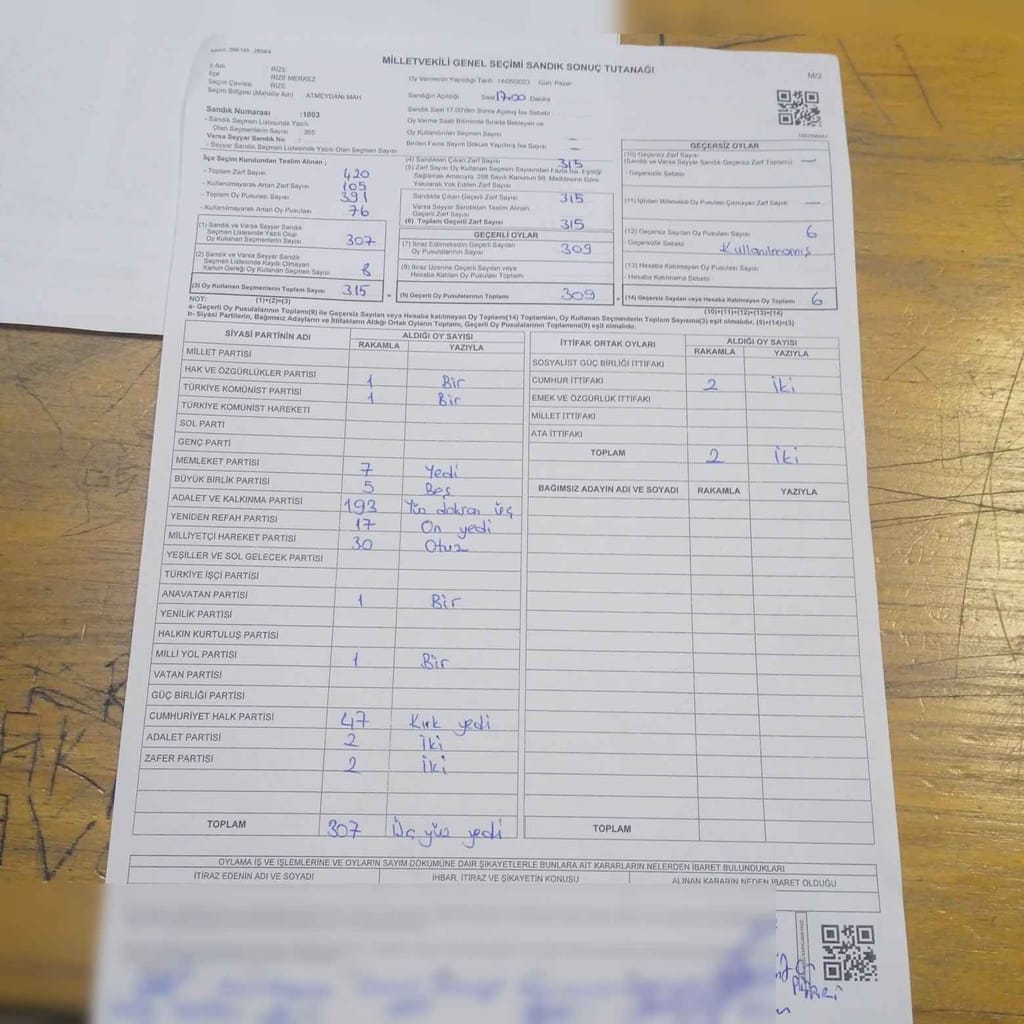 MİLLETVEKİLİ GENEL SEÇİMİ SANDIK SONUÇ TUTANAĞI
M/2
İl Adı : RİZE
İlçe : RİZE MERKEZ
Seçim Çevresi : RİZE
Seçim Bölgesi (Mahalle Adı) : ATMEYDANI MAH
Oy Vermenin Yapıldığı Tarih: 14/05/2023 Gün: Pazar
Sandığın Açıldığı Saat 17:00 Dakika
Sandık Saat 17.00'den Sonra Açılmış İse Sebebi
Oy Verme Saati Bitiminde Sırada Bekleyen ve
Oy Kullandırılan Seçmen Sayısı
Birden Fazla Sayım Döküm Yapılmış İse Sayısı —
Sandık Numarası :1003
- Sandık Seçmen Listesinde Yazılı
Olan Seçmenlerin Sayısı : 365
Varsa Seyyar Sandık No :
- Seyyar Sandık Seçmen Listesinde Yazılı Olan Seçmen Sayısı
İlçe Seçim Kurulundan Teslim Alınan ;
- Toplam Zarf Sayısı 420
- Kullanılmayarak Artan Zarf Sayısı 105
- Toplam Oy Pusulası Sayısı 391
- Kullanılmayarak Artan Oy Pusulası 76
(1) Sandık ve Varsa Seyyar Sandık
Seçmen Listesinde Yazılı Olup
Oy Kullanan Seçmenlerin Sayısı 307
(2) Sandık ve Varsa Seyyar Sandık
Seçmen Listesinde Kayıtlı Olmayan
Kanun Gereği Oy Kullanan Seçmen Sayısı 8
(3) Oy Kullanan Seçmenlerin Toplam Sayısı 315
(1)+(2)=(3)
(4) Sandıktan Çıkan Zarf Sayısı 315
(5) Zarf Sayısı Oy Kullanan Seçmen Sayısından Fazla İse, Eşitliği
Sağlamak Amacıyla, 298 Sayılı Kanunun 98. Maddesine Göre
Yakılarak Yok Edilen Zarf Sayısı
Sandıkta Çıkan Geçerli Zarf Sayısı 315
Varsa Seyyar Sandıktan Teslim Alınan
Geçerli Zarf Sayısı
(6) Toplam Geçerli Zarf Sayısı 315
GEÇERLİ OYLAR
(7) İtiraz Edilmeksizin Geçerli Sayılan
Oy Pusulalarının Sayısı 309
(8) İtiraz Üzerine Geçerli Sayılan veya
Hesaba Katılan Oy Pusulası Toplamı
(9) Geçerli Oy Pusulalarının Toplamı 309
GEÇERSİZ OYLAR
(10) Geçersiz Zarf Sayısı
(Sandık ve Varsa Seyyar Sandık Geçersiz Zarf Toplamı) —
- Geçersizlik Sebebi
(11) İçinden Milletvekili Oy Pusulası Çıkmayan Zarf Sayısı —
(12) Geçersiz Sayılan Oy Pusulası Sayısı 6
- Geçersizlik Sebebi Kullanılmamış
(13) Hesaba Katılmayan Oy Pusulası Sayısı
- Hesaba Katılmama Sebebi
(14) Geçersiz Sayılan veya Hesaba Katılmayan Oy Toplamı 6
(10)+(11)+(12)+(13)=(14)
NOT:
a- Geçerli Oy Pusulalarının Toplamı(9) ile Geçersiz Sayılan veya Hesaba Katılmayan Oy Toplamı(14) Toplamları, Oy Kullanan Seçmenlerin Toplam Sayısına(3) eşit olmalıdır. (9)+(14)=(3)
b- Siyasi Partilerin, Bağımsız Adayların ve İttifakların Aldığı Ortak Oyların Toplamı, Geçerli Oy Pusulalarının Toplamına(9) eşit olmalıdır.
SİYASİ PARTİNİN ADI
ALDIĞI OY SAYISI
RAKAMLA YAZIYLA
MİLLET PARTİSİ
HAK VE ÖZGÜRLÜKLER PARTİSİ 1 Bir
TÜRKİYE KOMÜNİST PARTİSİ 1 Bir
TÜRKİYE KOMÜNİST HAREKETİ
SOL PARTİ
GENÇ PARTİ
MEMLEKET PARTİSİ 7 Yedi
BÜYÜK BİRLİK PARTİSİ 5 Beş
ADALET VE KALKINMA PARTİSİ 193 Yüz doksan üç
YENİDEN REFAH PARTİSİ 17 On yedi
MİLLİYETÇİ HAREKET PARTİSİ 30 Otuz
YEŞİLLER VE SOL GELECEK PARTİSİ
TÜRKİYE İŞÇİ PARTİSİ
ANAVATAN PARTİSİ 1 Bir
YENİLİK PARTİSİ
HALKIN KURTULUŞ PARTİSİ
MİLLİ YOL PARTİSİ 1 Bir
VATAN PARTİSİ
GÜÇ BİRLİĞİ PARTİSİ
CUMHURİYET HALK PARTİSİ 47 Kırk yedi
ADALET PARTİSİ 2 İki
ZAFER PARTİSİ 2 İki
TOPLAM 307 Üç yüz yedi
İTTİFAK ORTAK OYLARI
ALDIĞI OY SAYISI
RAKAMLA YAZIYLA
SOSYALİST GÜÇ BİRLİĞİ İTTİFAKI
CUMHUR İTTİFAKI 2 İki
EMEK VE ÖZGÜRLÜK İTTİFAKI
MİLLET İTTİFAKI
ATA İTTİFAKI
TOPLAM 2 İki
BAĞIMSIZ ADAYIN ADI VE SOYADI RAKAMLA YAZIYLA
TOPLAM
OYLAMA İŞ VE İŞLEMLERİNE VE OYLARIN SAYIM DÖKÜMÜNE DAİR ŞİKAYETLERLE BUNLARA AİT KARARLARIN NELERDEN İBARET BULUNDUKLARI
İTİRAZ EDENİN ADI VE SOYADI İHBAR, İTİRAZ VE ŞİKAYETİN KONUSU ALINAN KARARIN NEDEN İBARET OLDUĞU